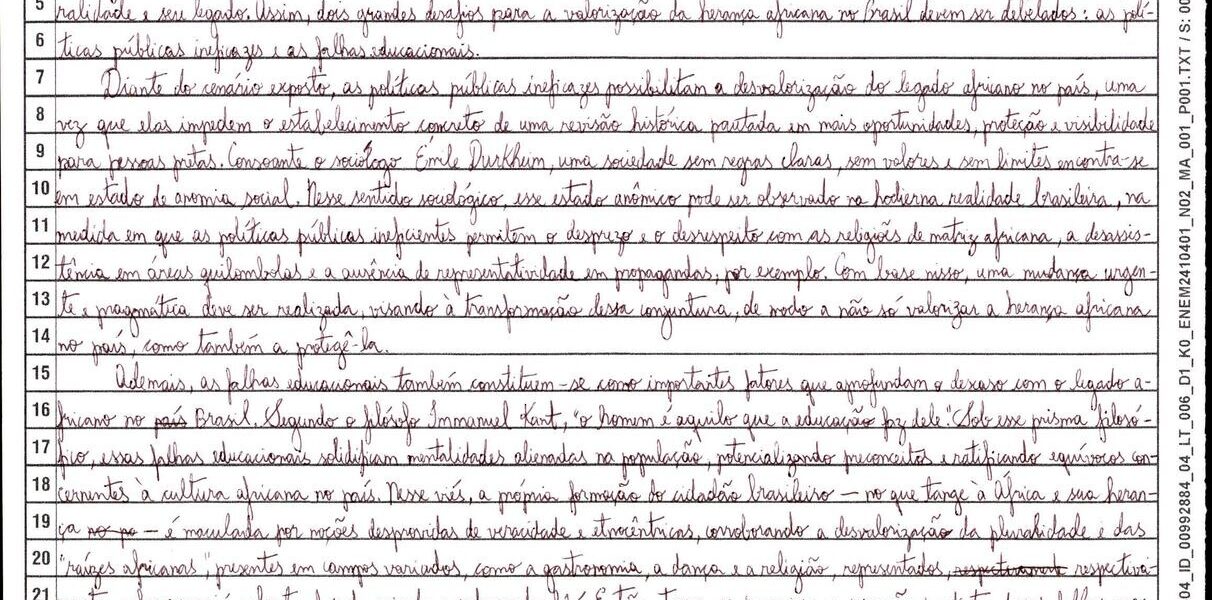 5 ralidade e seu legado. Assim, dois grandes desafios para a valorização da herança africana no Brasil devem ser debelados: as polí-
6 ticas públicas ineficazes e as falhas educacionais.
7 Diante do cenário exposto, as políticas públicas ineficazes possibilitam a desvalorização do legado africano no país, uma
8 vez que elas impedem o estabelecimento concreto de uma revisão histórica pautada em mais oportunidades, proteção e visibilidade
9 para pessoas pretas. Consoante o sociólogo Émile Durkheim, uma sociedade sem regras claras, sem valores e sem limites encontra-se
10 em estado de anomia social. Nesse sentido sociológico, esse estado anômico pode ser observado na hodierna realidade brasileira, na
11 medida em que as políticas públicas ineficientes permitem o desprezo e o desrespeito com as religiões de matriz africana, a desassis-
12 tência em áreas quilombolas e a ausência de representatividade em propagandas, por exemplo. Com base nisso, uma mudança urgen-
13 te e pragmática deve ser realizada, visando à transformação dessa conjuntura, de modo a não só valorizar a herança africana
14 no país, como também a protegê-la.
15 Ademais, as falhas educacionais também constituem-se como importantes fatores que aprofundam o descaso com o legado a-
16 fricano no país Brasil. Segundo o filósofo Immanuel Kant, "o homem é aquilo que a educação faz dele". Sob esse prisma filosó-
17 fico, essas falhas educacionais solidificam mentalidades alienadas na população, potencializando preconceitos e ratificando equívocos con-
18 cernentes à cultura africana no país. Nesse viés, a própria formação do cidadão brasileiro — no que tange à África e sua heran-
19 ça no pa — é maculada por noções desprovidas de veracidade e etnocêntricas, corroborando a desvalorização da pluralidade e das
20 "raízes africanas", presentes em campos variados, como a gastronomia, a dança e a religião, representados, respectivament respectiva-
21
04_ID_00992884_04_LT_006_D1_K0_ENEM2410401_N02_MA_001_P001.TXT / S: 00